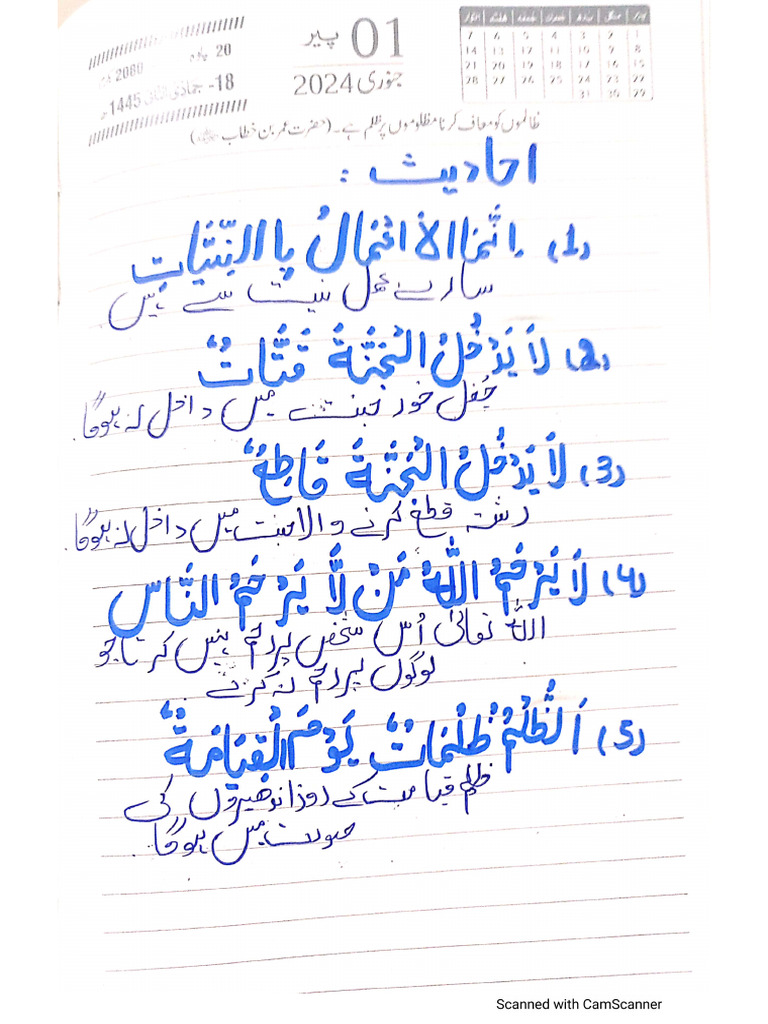 01 پیر
جنوری 2024
20 پوہ 2080
18- جمادی الثانی 1445ھ
اتوار ہفتہ جمعہ جمعرات بدھ منگل پیر
7 6 5 4 3 2 1
14 13 12 11 10 9 8
21 20 19 18 17 16 15
28 27 26 25 24 23 22
31 30 29
ظالموں کو معاف کرنا مظلوموں پر ظلم ہے۔ (حضرت عمر بن خطاب)
احادیث :
(1) اِنَّمَا الاَ اعْمَالُ بِا النِّیَّاتِ
سارے عمل نیت سے ہیں
(2) لَا یَدْخُلُ الْجَنَّةَ قَتَّاتٌ
چُغل خور جنت میں داخل نہ ہوگا۔
(3) لَا یَدْخُلُ الْجَنَّةَ قَاطِعٌ
رشتہ قطع کرنے والا جنت میں داخل نہ ہوگا۔
(4) لَا یَرْحَمُ اللّٰهُ مَنْ لَّا یَرْحَمُ النَّاسَ
اللّٰہ تعالیٰ اُس شخص پر رحم نہیں کرتا جو
لوگوں پر رحم نہ کرے
(5) اَلظُّلْمُ ظُلُمَاتٌ یَوْمَ الْقِیَامَةِ
ظلم قیامت کے روز اندھیروں کی
صورت میں ہوگا
Scanned with CamScanner